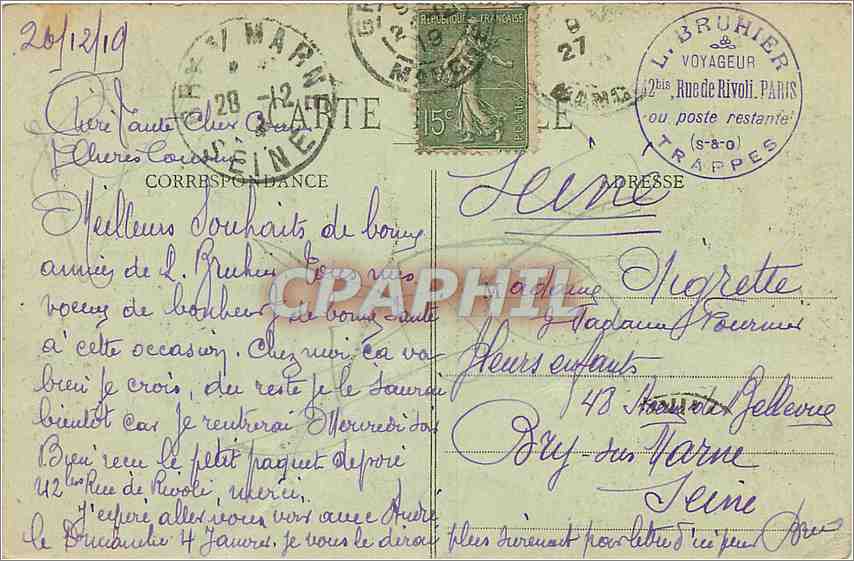 26/12/19
BRY S/ MARNE
28 -12
SEINE
REPUBLIQUE FRANÇAISE
15c
POSTES
MARNE
19
27
L. BRUHIER
VOYAGEUR
42bis, Rue de Rivoli. PARIS
ou poste restante
(S-&-O)
TRAPPES
CARTE
Chère Tante Cher Oncle
& Chères Cousines
CORRESPONDANCE
Meilleurs Souhaits de bonne
année de L. Bruhier Tous mes
voeux de bonheur, de bonne santé
à cette occasion. Chez moi, ça va
bien je crois, du reste je le saurai
bientôt car je rentrerai Mercredi soir
Bien reçu le petit paquet déposé
42 bis Rue de Rivoli, merci.
J'espère aller vous voir avec André
le Dimanche 4 Janvier. je vous le dirai plus sûrement par lettre d'ici peu
ADRESSE
Seine
Madame Nigrette
& Madame Fournier
& leurs enfants
48 de Bellevue
Bry-sur Marne
Seine
CPARPHIL